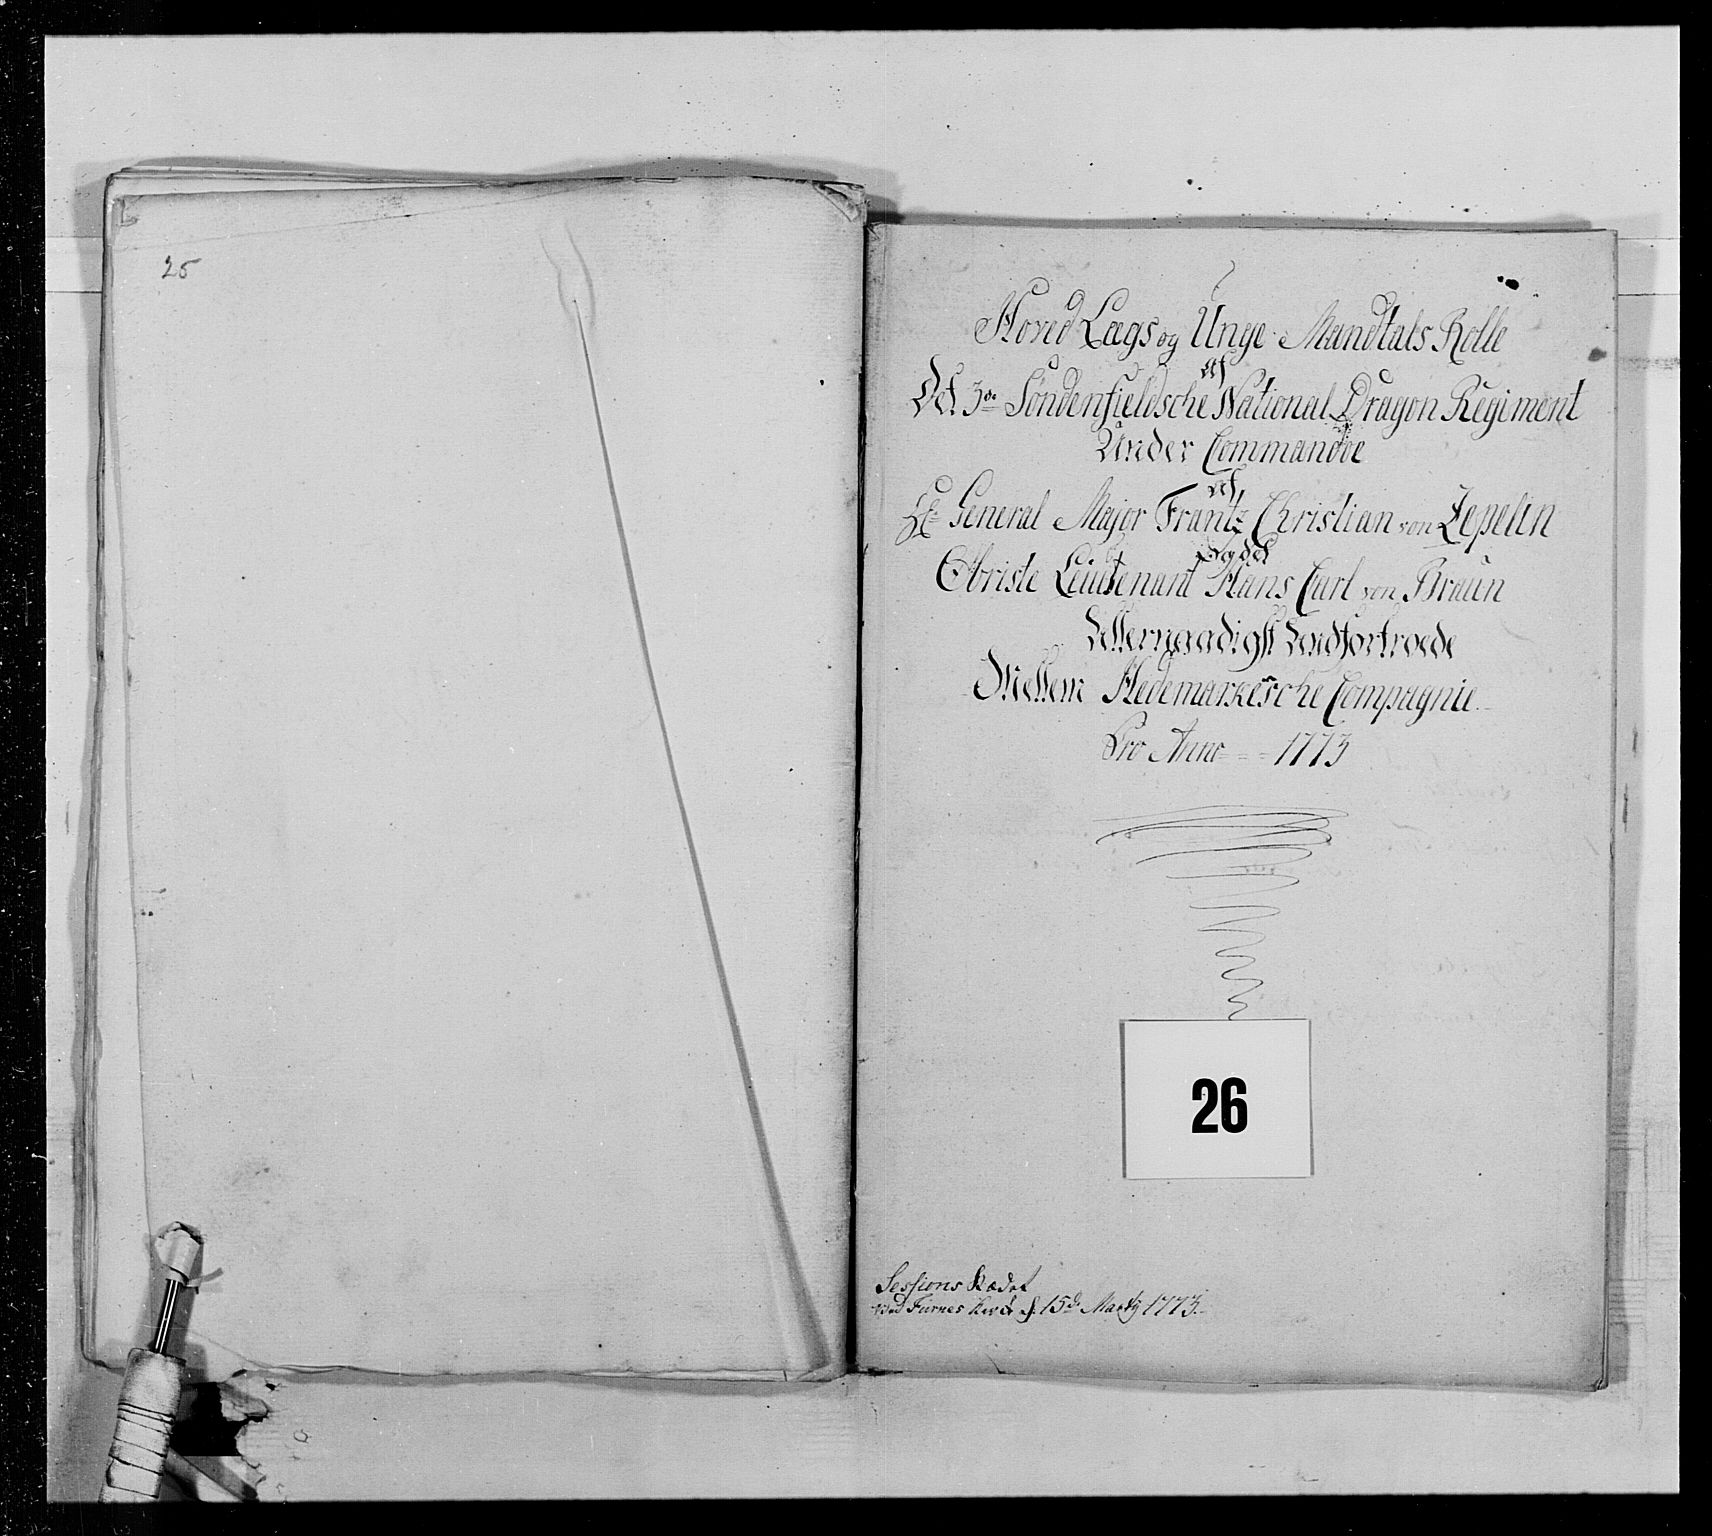 25
Hoved Lægs og Unge Mandtals Rolle
af
Det 3de Søndenfieldsche National Dragon Regiment
Under Commandoe
af
Hr General Major Frantz Christian von Zepelin
Og det
Obriste Leutenant Hans Carl von Braun
Allernaadigst Andfortroede
Mellem Hedemarkesche Compagnie
Pro Anno - - 1773
26
Sessions Stædet
ved Furnes Kircke d. 15de Marty 1773.